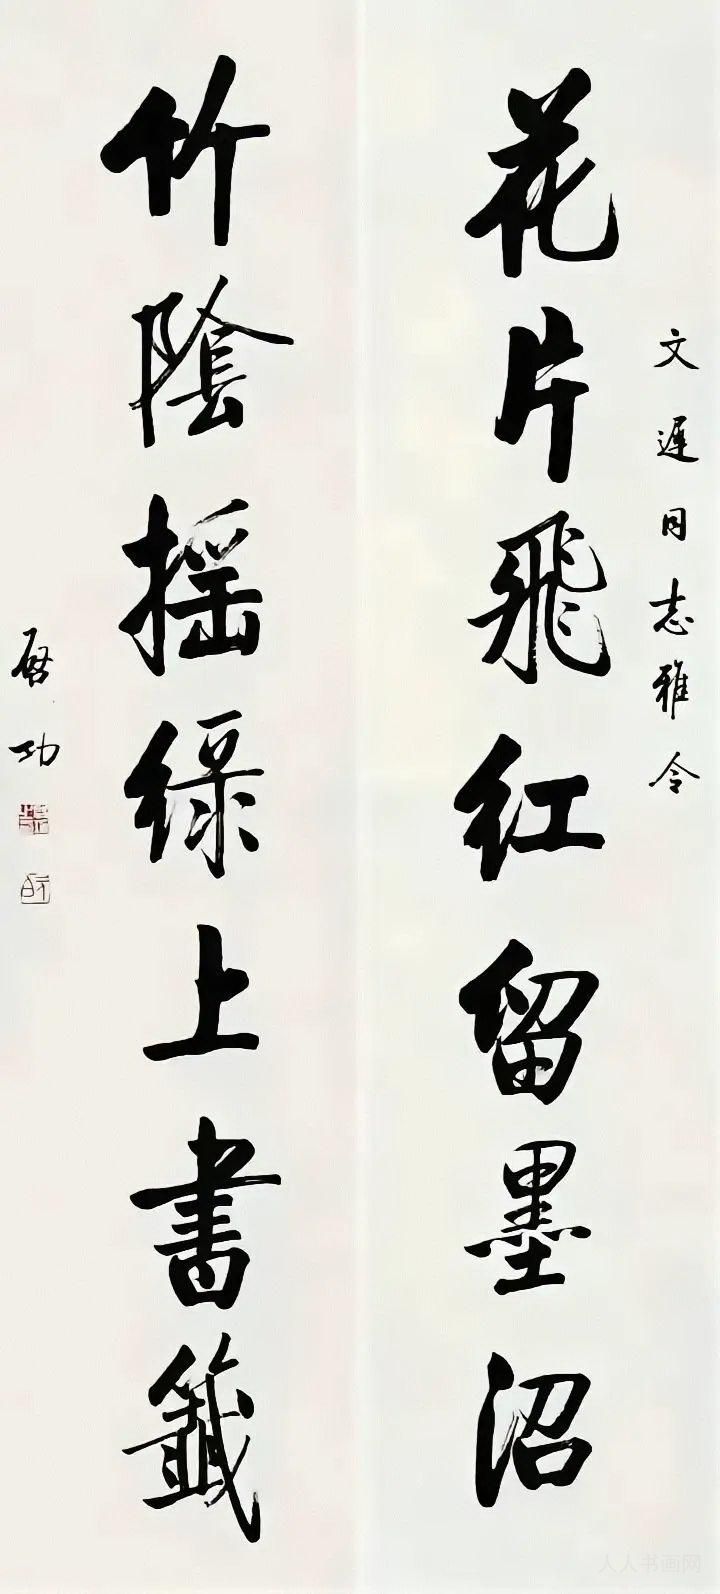 文遲同志雅令
花片飛红留墨沼
竹陰摇绿上書籤
启功
人人书画网